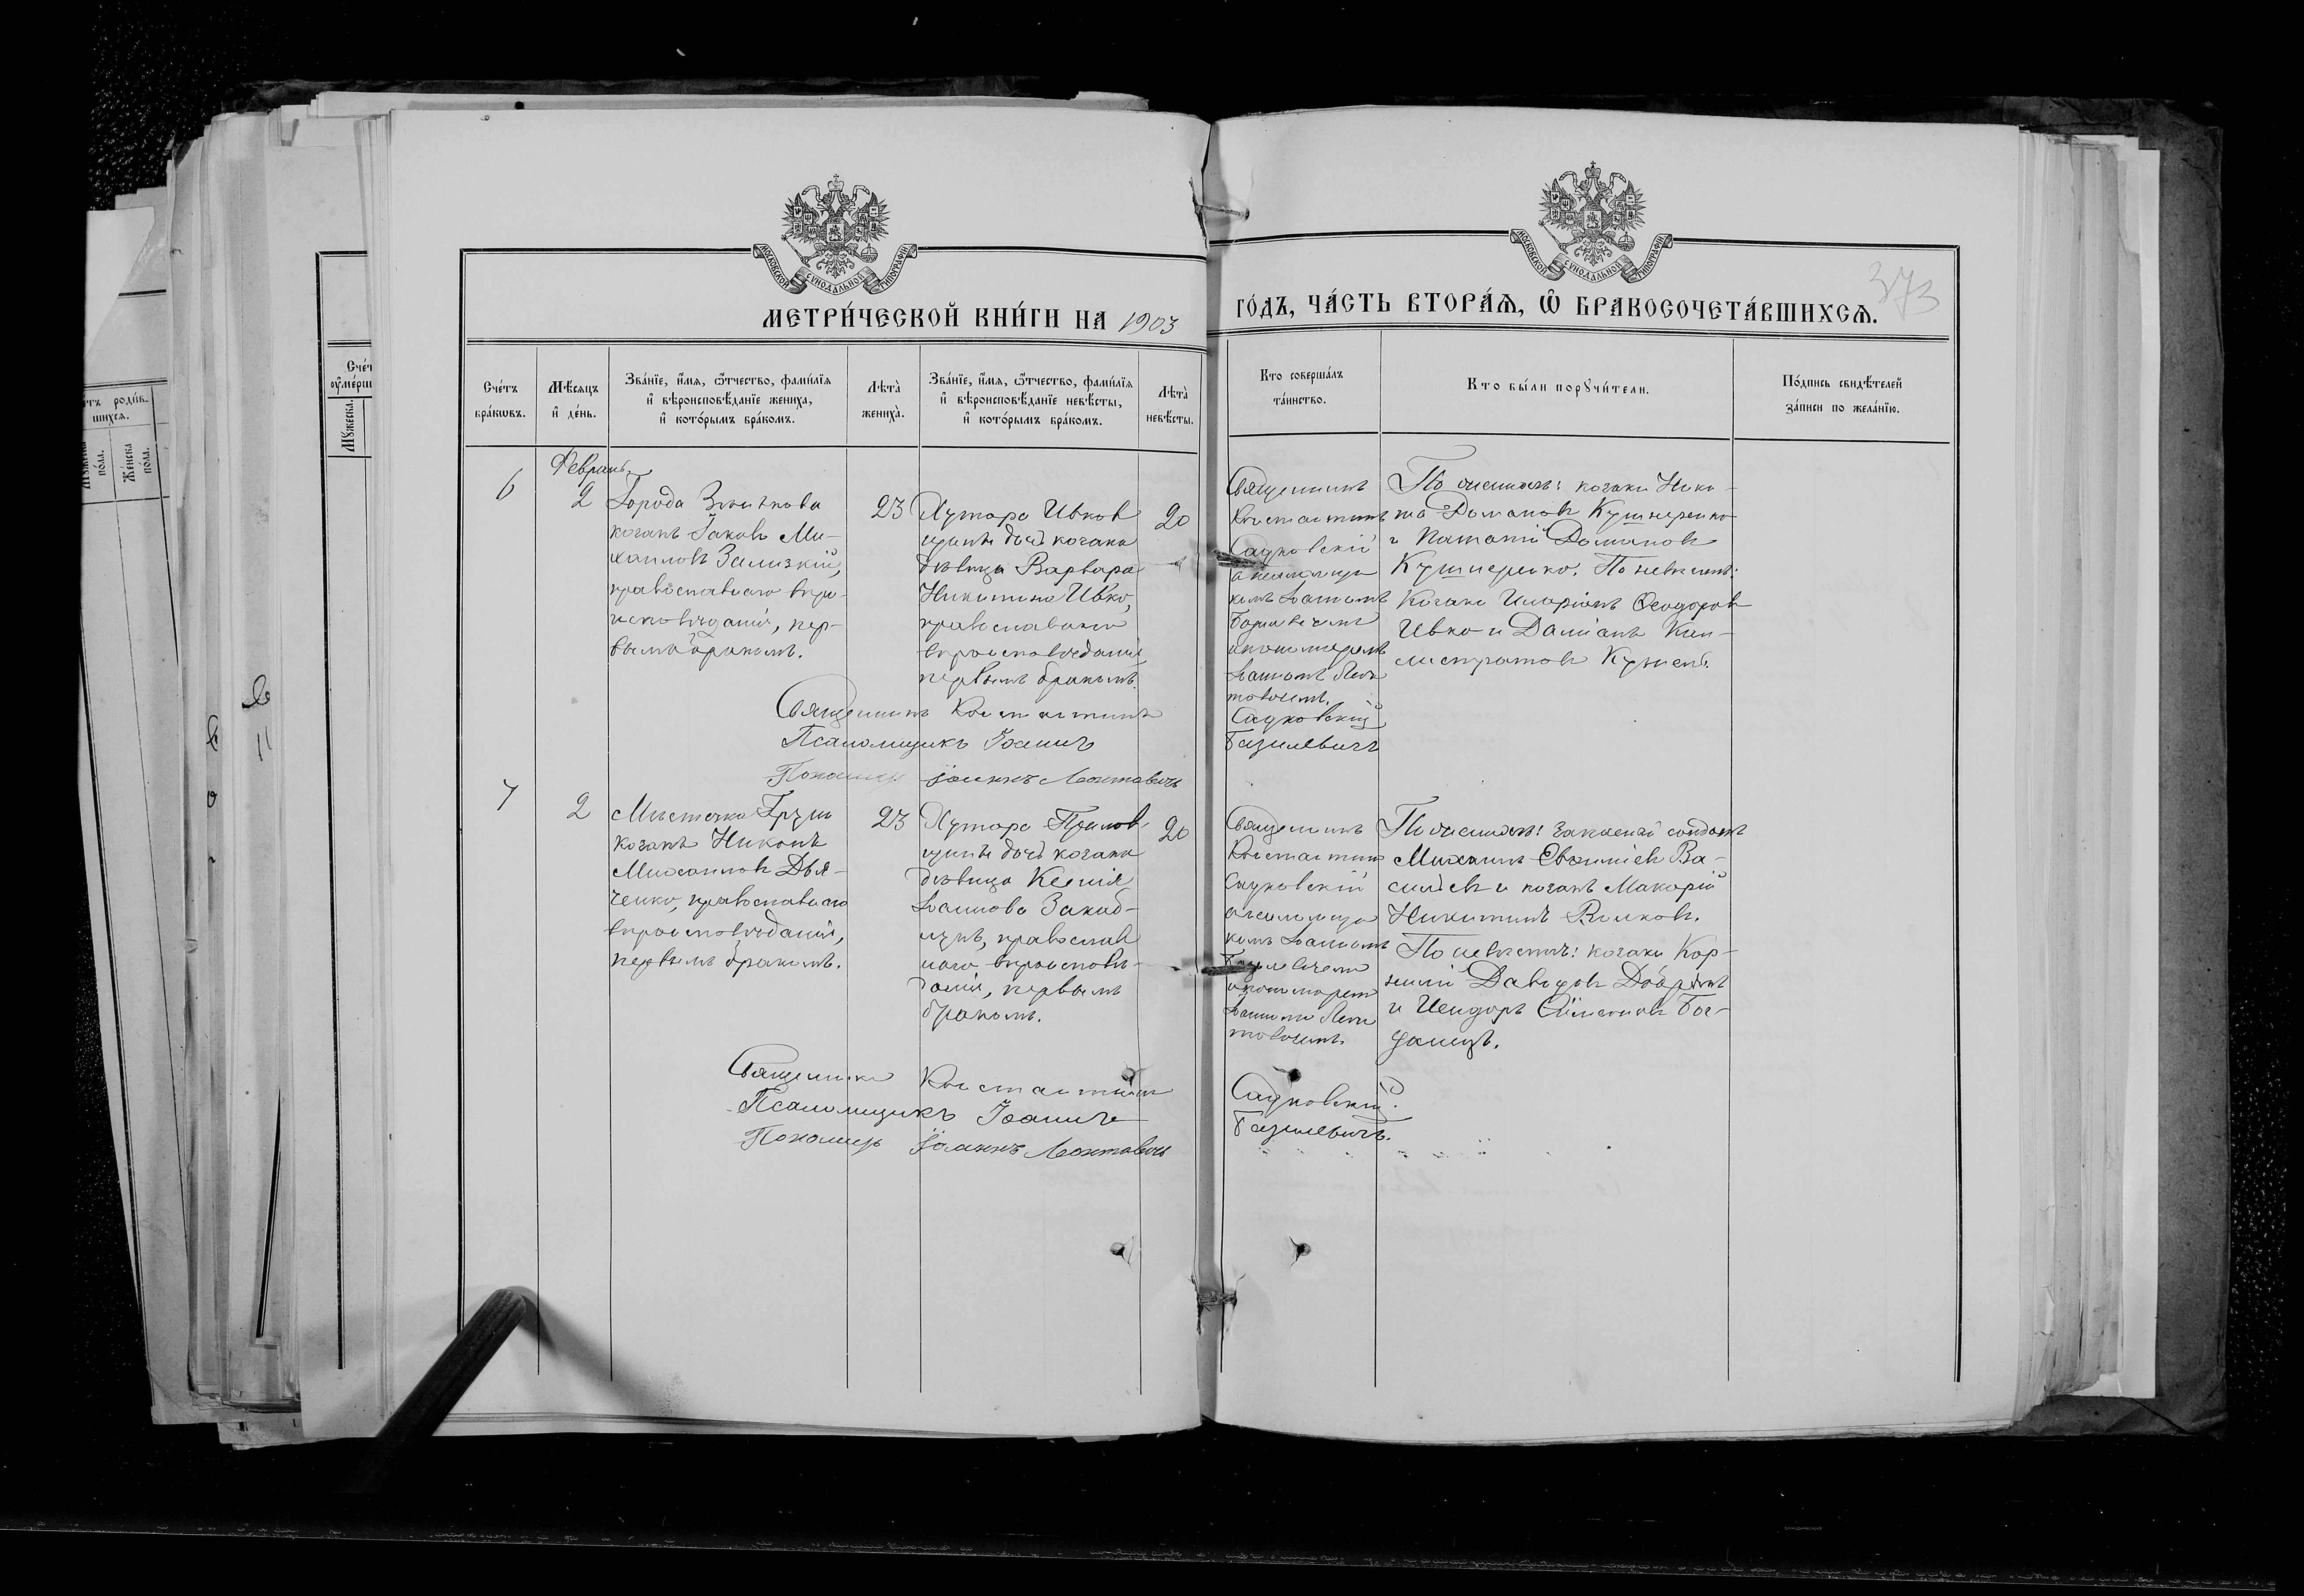 МОСКОВСКОЙ СѴНОДАЛЬНОЙ ТИПОГРАФІИ
МОСКОВСКОЙ СѴНОДАЛЬНОЙ ТИПОГРАФІИ
373
МЕТРИ́ЧЕСКОЙ КНИ́ГИ НА 1903
ГО́ДЪ, ЧА́СТЬ ВТОРА́Ѧ, Ѿ БРАКОСОЧЕТА́ВШИХСѦ.
Сче́тъ бра́кѡвъ.
Мѣ́сѧцъ и҆ де́нь.
Зва́нїе, и҆́мѧ, ѻ҆́тчество, фами́лїѧ и҆ вѣроисповѣ́данїе жениха̀, и҆ кото́рымъ бра́комъ.
Лѣта̀ жениха̀.
Зва́нїе, и҆́мѧ, ѻ҆́тчество, фами́лїѧ и҆ вѣроисповѣ́данїе невѣ́сты, и҆ кото́рымъ бра́комъ.
Лѣта̀ невѣ́сты.
Кто соверша́лъ та́инство.
Кто бы́ли порꙋчи́тели.
По́дпись свидѣ́телей за́писи по жела́нїю.
6
Февраль
2
Города Зѣнькова
козакъ Іаковъ Ми-
хаиловъ Зализкій,
православнаго вѣро-
исповѣданія, пер-
вымъ бракомъ.
23
Хутора Ивков
щины дочь козака
дѣвица Варвара
Никитина Ивко,
православнаго
вѣроисповѣданія
первымъ бракомъ.
20
Священникъ
Константинъ
Садковскій
с псаломщи
комъ Іоанномъ
Базилевичемъ
и пономаремъ
Іоанномъ Леон
товичемъ.
По женихѣ: козаки Ники-
та Домановъ Кушнеренко
и Домановъ
Кушнеренко. По невѣстѣ:
козаки Иларіонъ Ѳеодоровъ
Ивко и Даміанъ
Священникъ Константинъ Садковскій
Псаломщикъ Іоаннъ Базилевичъ
Пономарь Іоаннъ Леонтовичъ
7
2
Мѣстечка Грунь
козакъ Никонъ
Михаиловъ Дья-
ченко, православнаго
вѣроисповѣданія,
первымъ бракомъ.
23
Хутора
щины дочь козака
дѣвица Ксенія
Іоаннова
православ
наго вѣроисповѣ-
данія, первымъ
бракомъ.
20
Священникъ
Константинъ
Садковскій
с псаломщи
комъ Іоанномъ
Базилевичемъ
и пономаремъ
Іоанномъ Леон
товичемъ.
По женихѣ: запасный солдатъ
Михаилъ Евѳиміевъ Ва-
сильевъ и козакъ Макарій
Никитинъ Волковъ.
По невѣстѣ: козаки Кор-
нилій Давидовъ
и Исидоръ Бог-
данецъ.
Священникъ Константинъ Садковскій.
Псаломщикъ Іоаннъ Базилевичъ.
Пономарь Іоаннъ Леонтовичъ